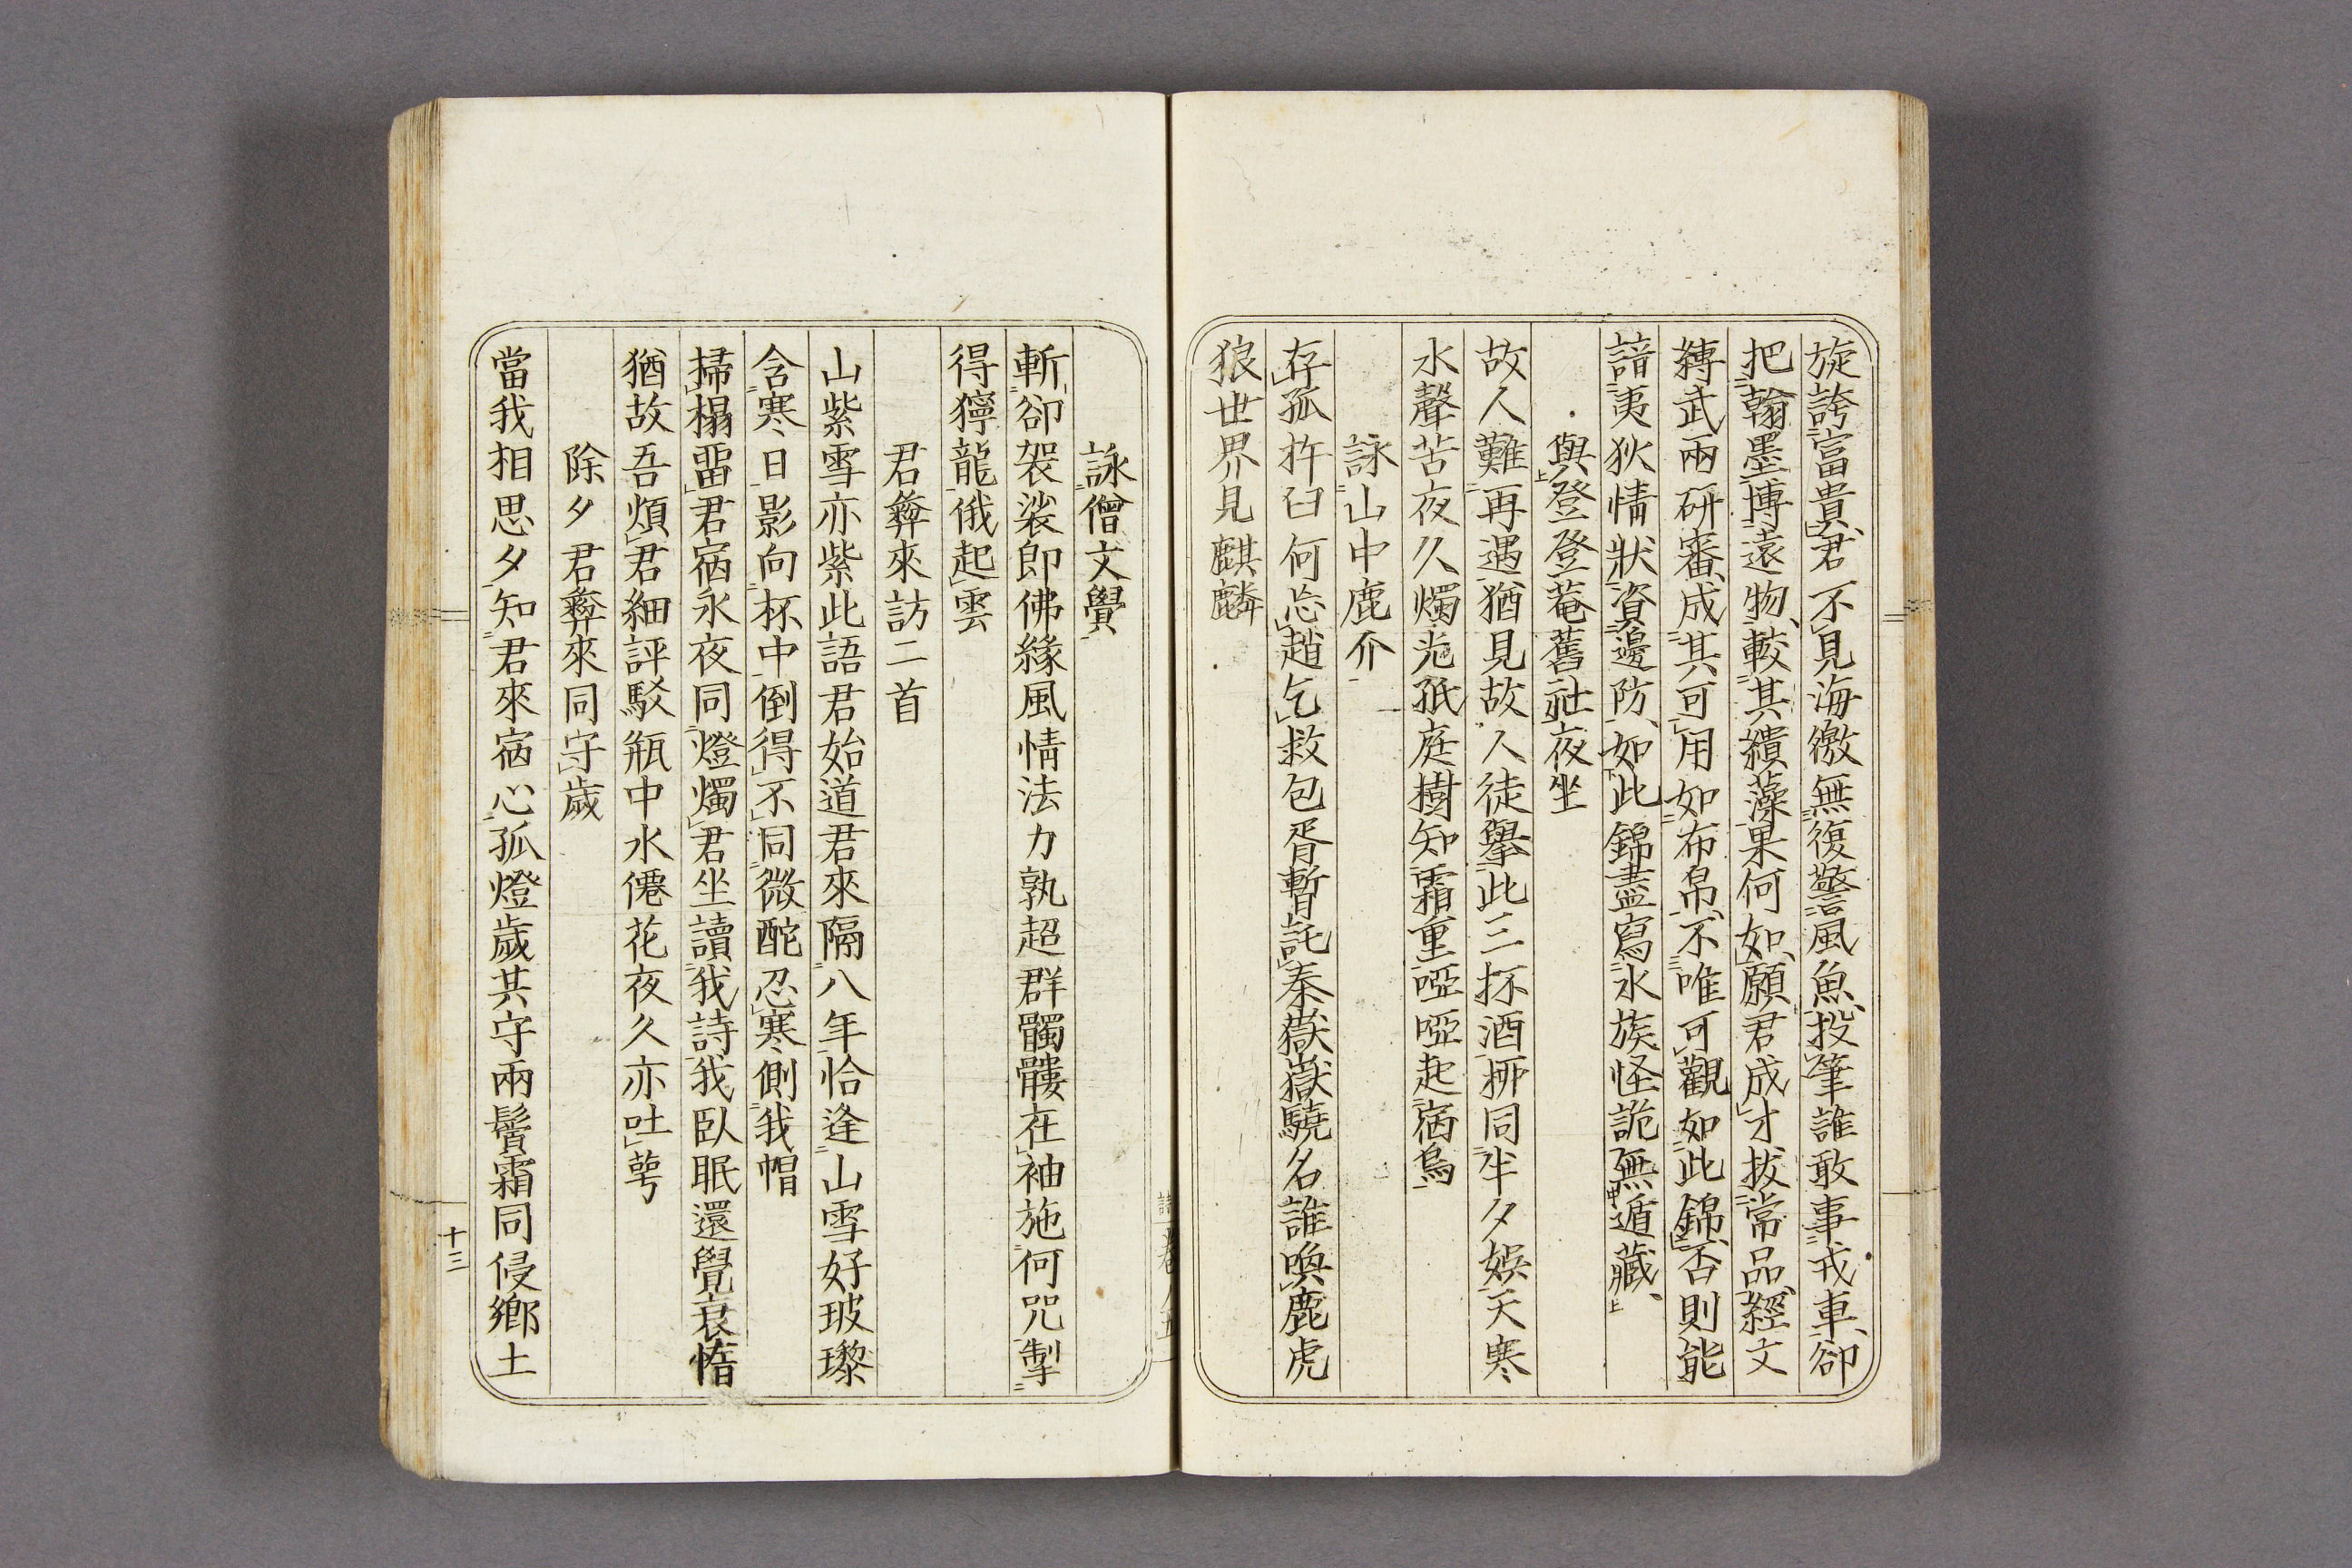 旋誇富貴君不見海徼無復警風魚投筆誰敢事戎車卻
把翰墨博遠物較其繢藻果何如願君成才拔常品經文
縛武兩研審成其可用如布帛不唯可觀如此錦否則能
諳夷狄情狀資邊防如此錦盡寫水族怪詭無遁藏
與登登菴舊社夜坐
故人難再遇猶見故人徒擧此三抔酒挷同半夕娛天寒
水聲苦夜久燭光孤庭樹知霜重啞啞起宿烏
詠山中鹿介
存孤杵臼何忘趙乞救包胥暫託秦嶽嶽驍名誰喚鹿虎
狼世界見麒麟
詠僧文覺
斬卻袈裟即佛緣風情法力孰超群髑髏在袖施何咒掣
得獰龍俄起雲
君彝來訪二首
山紫雪亦紫此語君始道君來隔八年恰逢山雪好玻瓈
含寒日影向杯中倒得不同微酡忍寒側我帽
掃榻畱君宿永夜同燈燭君坐讀我詩我臥眠還覺衰惰
猶故吾煩君細評駁瓶中水僊花夜久亦吐萼
除夕君彝來同守歲
當我相思夕知君來宿心孤燈歲共守兩鬢霜同侵鄉土
十三